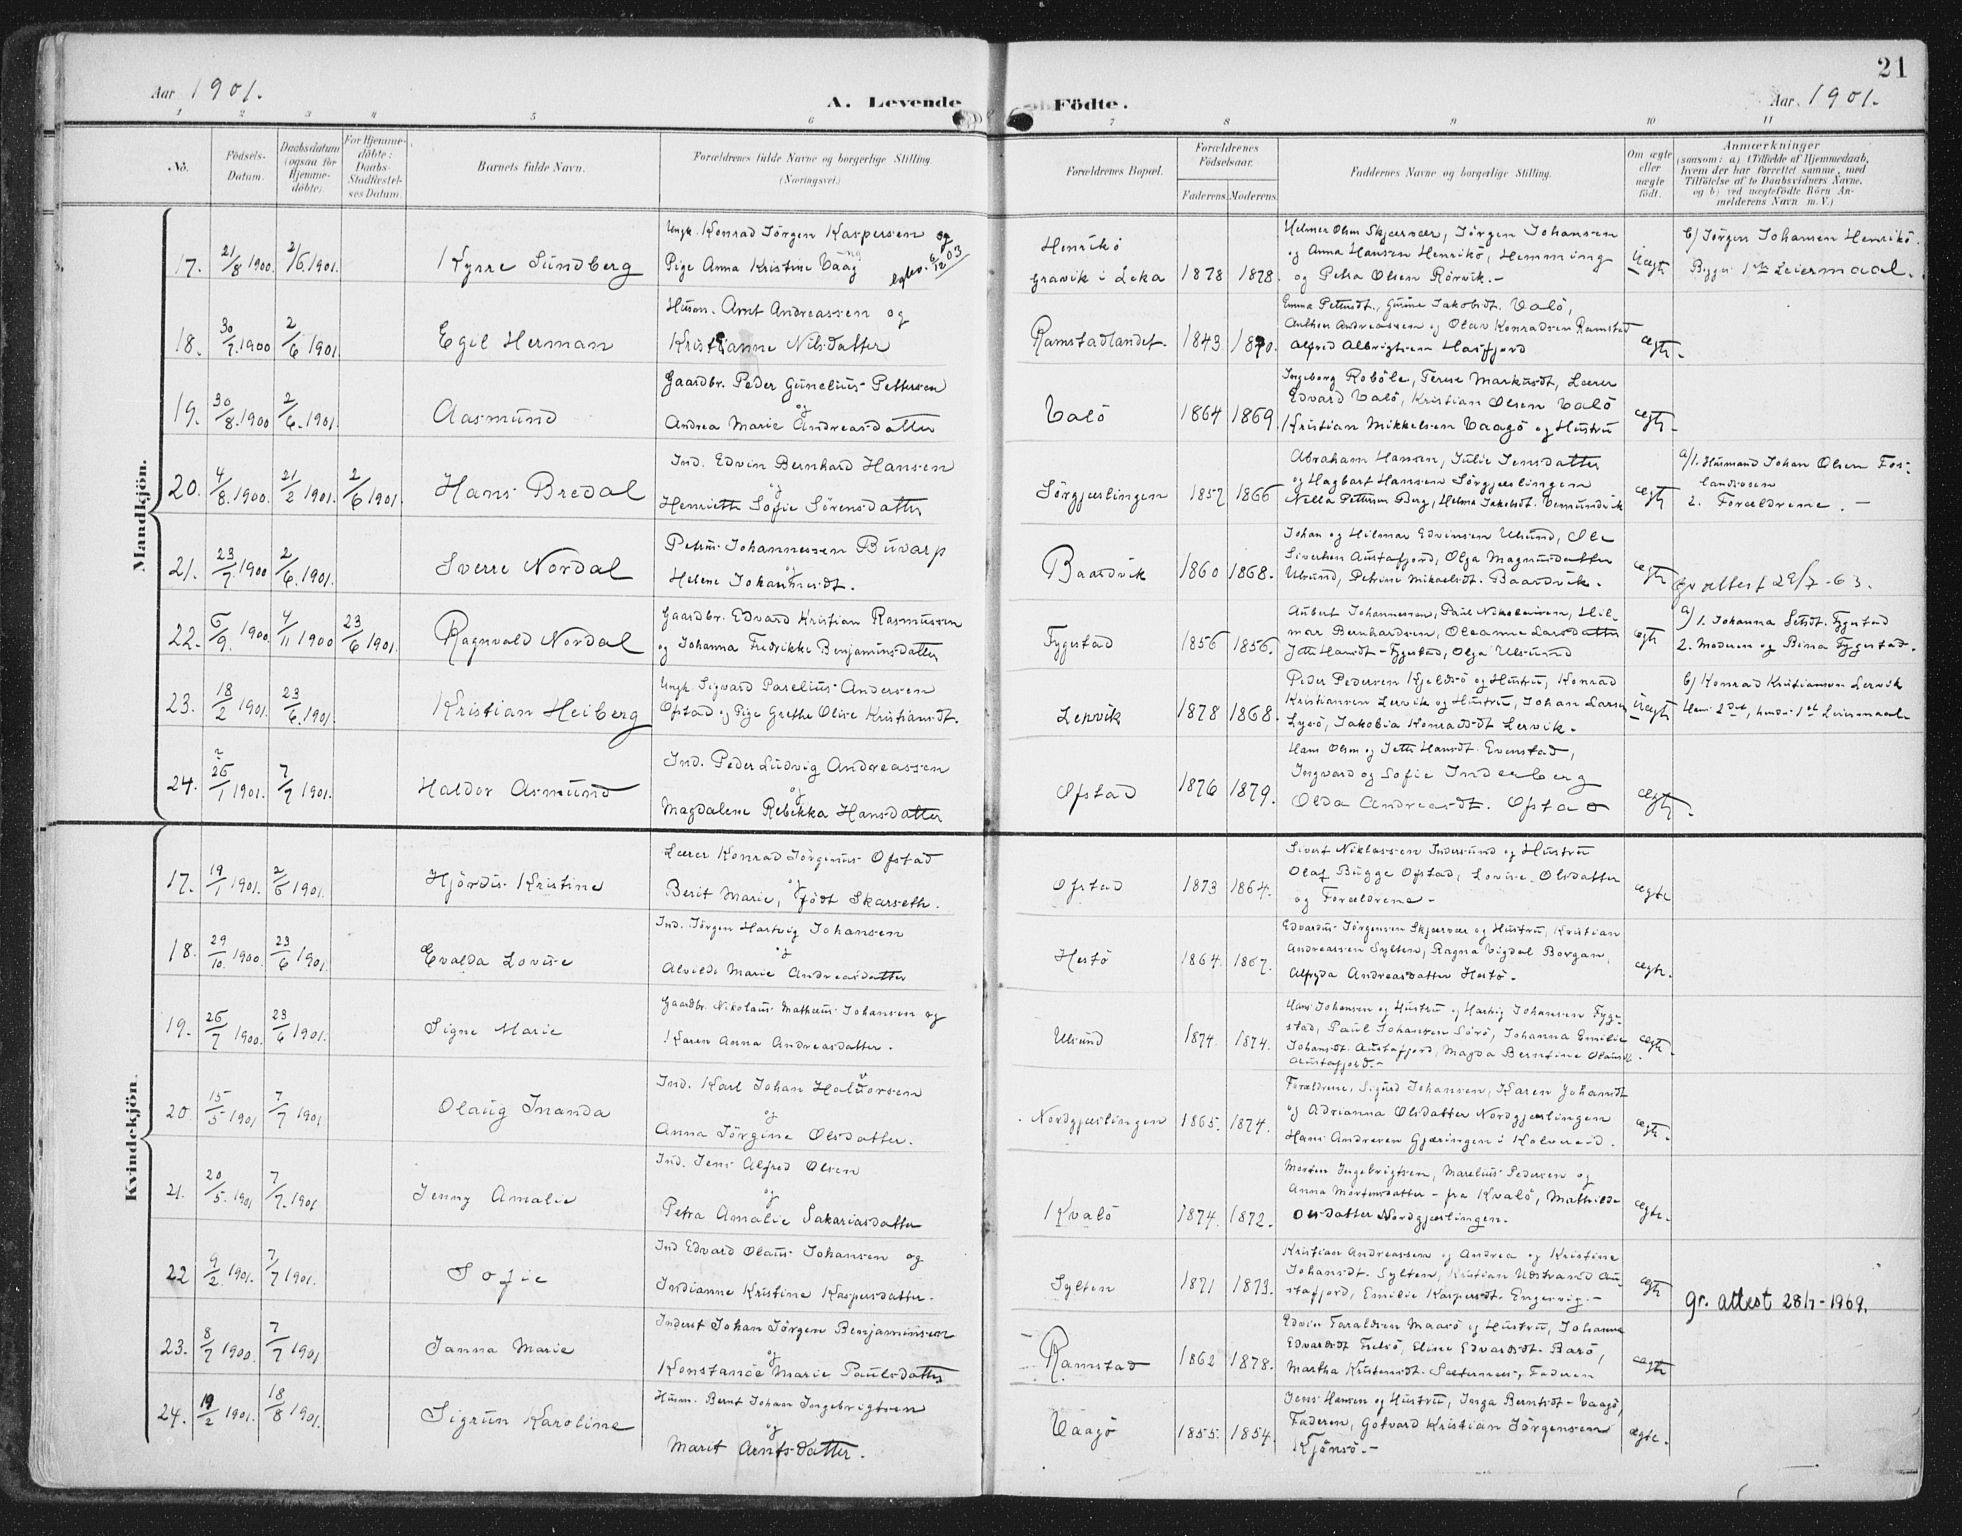 21
Aar 1901.
A. Levende Födte.
Aar 1901.
1 2 3 4 5 6 7 8 9 10 11
No.
Födsels-Datum.
Daabsdatum (ogsaa for Hjemmedöbte).
For Hjemmedöbte: Daabs-Stadfæstelses Datum.
Barnets fulde Navn.
Forældrenes fulde Navne og borgerlige Stilling.
(Næringsvei.)
Forældrenes Bopæl.
Forældrenes Födselsaar.
Faderens. Moderens.
Faddernes Navne og borgerlige Stilling.
Om ægte eller uægte födt.
Anmærkninger
(saasom: a) i Tilfælde af Hjemmedaab, hvem der har forrettet samme, med Tilföielse af to Daabsvidners Navne, og b) ved uægtefödte Börn Anmelderens Navn m. V.)
Mandkjön.
17. 21/8 1900. 2/6 1901. Kyrre Sundberg
Ungk. Konrad Jörgen Kaspersen og
Pige Anna Kristine Vaag
Henrikö
Gravik i Leka 1878 1878.
Helmer Olsen Skjærvær, Jörgen Johansen
og Anna Hansen Henrikö, Hemming
og Petra Olsen Rörvik.-
Uægte
b) Jörgen Johansen Henrikö.
Begges 1ste Leiermaal.
18. 30/7 1900 2/6 1901 Egil Herman
Husm. Arnt Andreassen og
Kristianne Nilsdatter
Ramstadlandet. 1843 1870.
Emma Pettersdt., Gurine Jakobsdt. Valö,
Anthon Andreassen og Olav Konradsen Ramstad
Alfred Albrigtsen Hasfjord
ægte.
19. 30/8 1900 2/6 1901 Aasmund
Gaardbr. Peder Gunelius Pettersen
og
Andrea Marie Andreasdatter
Valö 1864 1869.
Ingeborg Roböle, Terese Markusdt, Lærer
Edvard Valö, Kristian Olsen Valö
Kristian Mikkelsen Vaagö og Hustru
ægte.
20. 4/8 1900. 21/2 1901. 2/6 1901. Hans Bredal
Ind. Edvin Bernhard Hansen
og
Henriette Sofie Sörensdatter
Sörgjæslingen 1857 1866
Abraham Hansen, Julie Jensdatter
og Hagbart Hansen Sörgjæslingen
Nella Pettersen Berg, Helma Jakobsdt.
ægte
a/1. Husmand Johan Olsen Foslandsosen
2. Forældrene. -
21. 23/7 1900 2/6 1901. Sverre Nordal
Petrus Johannessen Buvarp
og
Helene Johannesdt.
Baardvik 1860 1868.
Johan og Hilmar Edvinsen Ulsund, Ole
Sivertsen Austafjord, Olga Magnusdatter
Ulsund, Petrine Mikaelsdt. Baardvik.
ægte
gr attest 29/7-63.
22. 6/9 1900. 4/11 1900 23/6 1901. Ragnvald Nordal
Gaardbr. Edvard Kristian Rasmussen
og Johanna Fredrikke Benjaminsdatter
Fygestad 1856 1856.
Aubert Johannessen, Paul Nikolaisen, Hilmar
Bernhardsen, Oleanne Larsdatter
Jette Hansdt Fygestad, Olga Ulsund
ægte
a/1. Johanna Fygestad
2. Moderen og Bina Fygestad.
23. 18/2 1901. 23/6 1901. Kristian Heiberg
Ungk. Sigvard Parelius Andersen
Ofstad og Pige Grethe Olive Kristiansdt.
Lervik 1878 1868.
Peder Pedersen Kjeldsö og Hustru, Konrad
Kristiansen Lervik og Hustru, Johan Larsen
Lysö, Jakobia Konradsdt Lervik.
Uægte
b) Konrad Kristiansen Lervik
Hans 2det, hendes 1ste Leiermaal.
24. 26/1 1901. 7/7 1901. Haldor Asmund
Ind. Peder Ludvig Andreassen
og
Magdalene Rebekka Hansdatter
Ofstad 1876 1879.
Hans Olsen og Jette Hansdt. Evenstad,
Ingvard og Sofie Inderberg
Olda Andreasdt. Ofstad
ægte.
Kvindekjön.
17. 19/1 1901. 2/6 1901. Hjördis Kristine
Lærer Konrad Jörgenus Ofstad
og
Berit Marie, födt Skarseth.
Ofstad 1873 1864.
Sivert Niklassen Indersund og Hustru
Olaf Bugge Ofstad, Lovise Olsdatter
og Forældrene -
ægte
18. 29/10 1900. 23/6 1901. Evalda Lovise
Ind. Jörgen Hartvig Johansen
og
Alvilde Marie Andreasdatter
Hestö 1864. 1867.
Edvardus Jörgensen Skjærvær og Hustru, Kristian
Andreassen Sylten, Ragna Vigdal Borgan,
Alfryda Andreasdatter Hestö.
ægte.
19. 26/7 1900. 23/6 1901. Signe Marie
Gaardbr. Nikolaus Mathæus Johansen og
Karen Anna Andreasdatter.
Ulsund 1874. 1874.
Hans Johansen og Hustru og Hartvig Johansen Fygestad,
Paul Johansen Sörö, Johanna Emilie
Johansdt. Austafjord, Magda Berntine Olausdt
Austafjord.-
ægte.
20. 15/5 1901 7/7 1901 Olaug Inanda
Ind. Karl Johan Halvorsen
og
Anna Jörgine Olsdatter.
Nordgjæslingen 1865. 1874.
Forældrene, Sigurd Johansen, Karen Johansdt
og Adrianna Olsdatter Nordgjæslingen
Hans Andresen Gjæringen i Kolvereid.
ægte.
21. 20/5 1901 7/7 1901 Jenny Amalie
Ind. Jens Alfred Olsen
og
Petra Amalie Sakariasdatter
Kvalö 1874. 1872.
Morten Ingebrigtsen, Marelius Pedersen og
Anna Mortensdatter - fra Kvalö, Mathilde
Olsdatter Nordgjæslingen.
ægte.
22 9/2 1901. 7/7 1901. Sofie
Ind Edvard Olaus Johansen og
Indianne Kristine Kaspersdatter.
Sylten 1871 1873.
Kristian Andreassen og Andrea og Kristine
Johansdt. Sylten, Kristian Udstrand Austafjord,
Emilie Kaspersdt. Engesvig.-
ægte
gr. attest 28/1-1969.
23. 8/7 1900. 7/7 1901 Janna Marie
Inderst Johan Jörgen Benjaminsen
og
Konstanse Marie Paulsdatter
Ramstad 1862 1878.
Edvin Taraldsen Maasö og Hustru, Johanna
Edvardsdt Frelsö, Eline Edvardsdt. Barö,
Martha Kristensdt. Sæternes, Faderen
ægte
24. 19/2 1901. 18/8 1901. Sigrun Karoline
Husm. Bernt Johan Ingebrigtsen
og
Marit Arntsdatter.
Vaagö 1855. 1854.
Jens Hansen og Hustru, Inga Berntsdt Vaagö,
Faderen, Gotvard Kristian Jörgensen
Kjönsö.-
ægte.